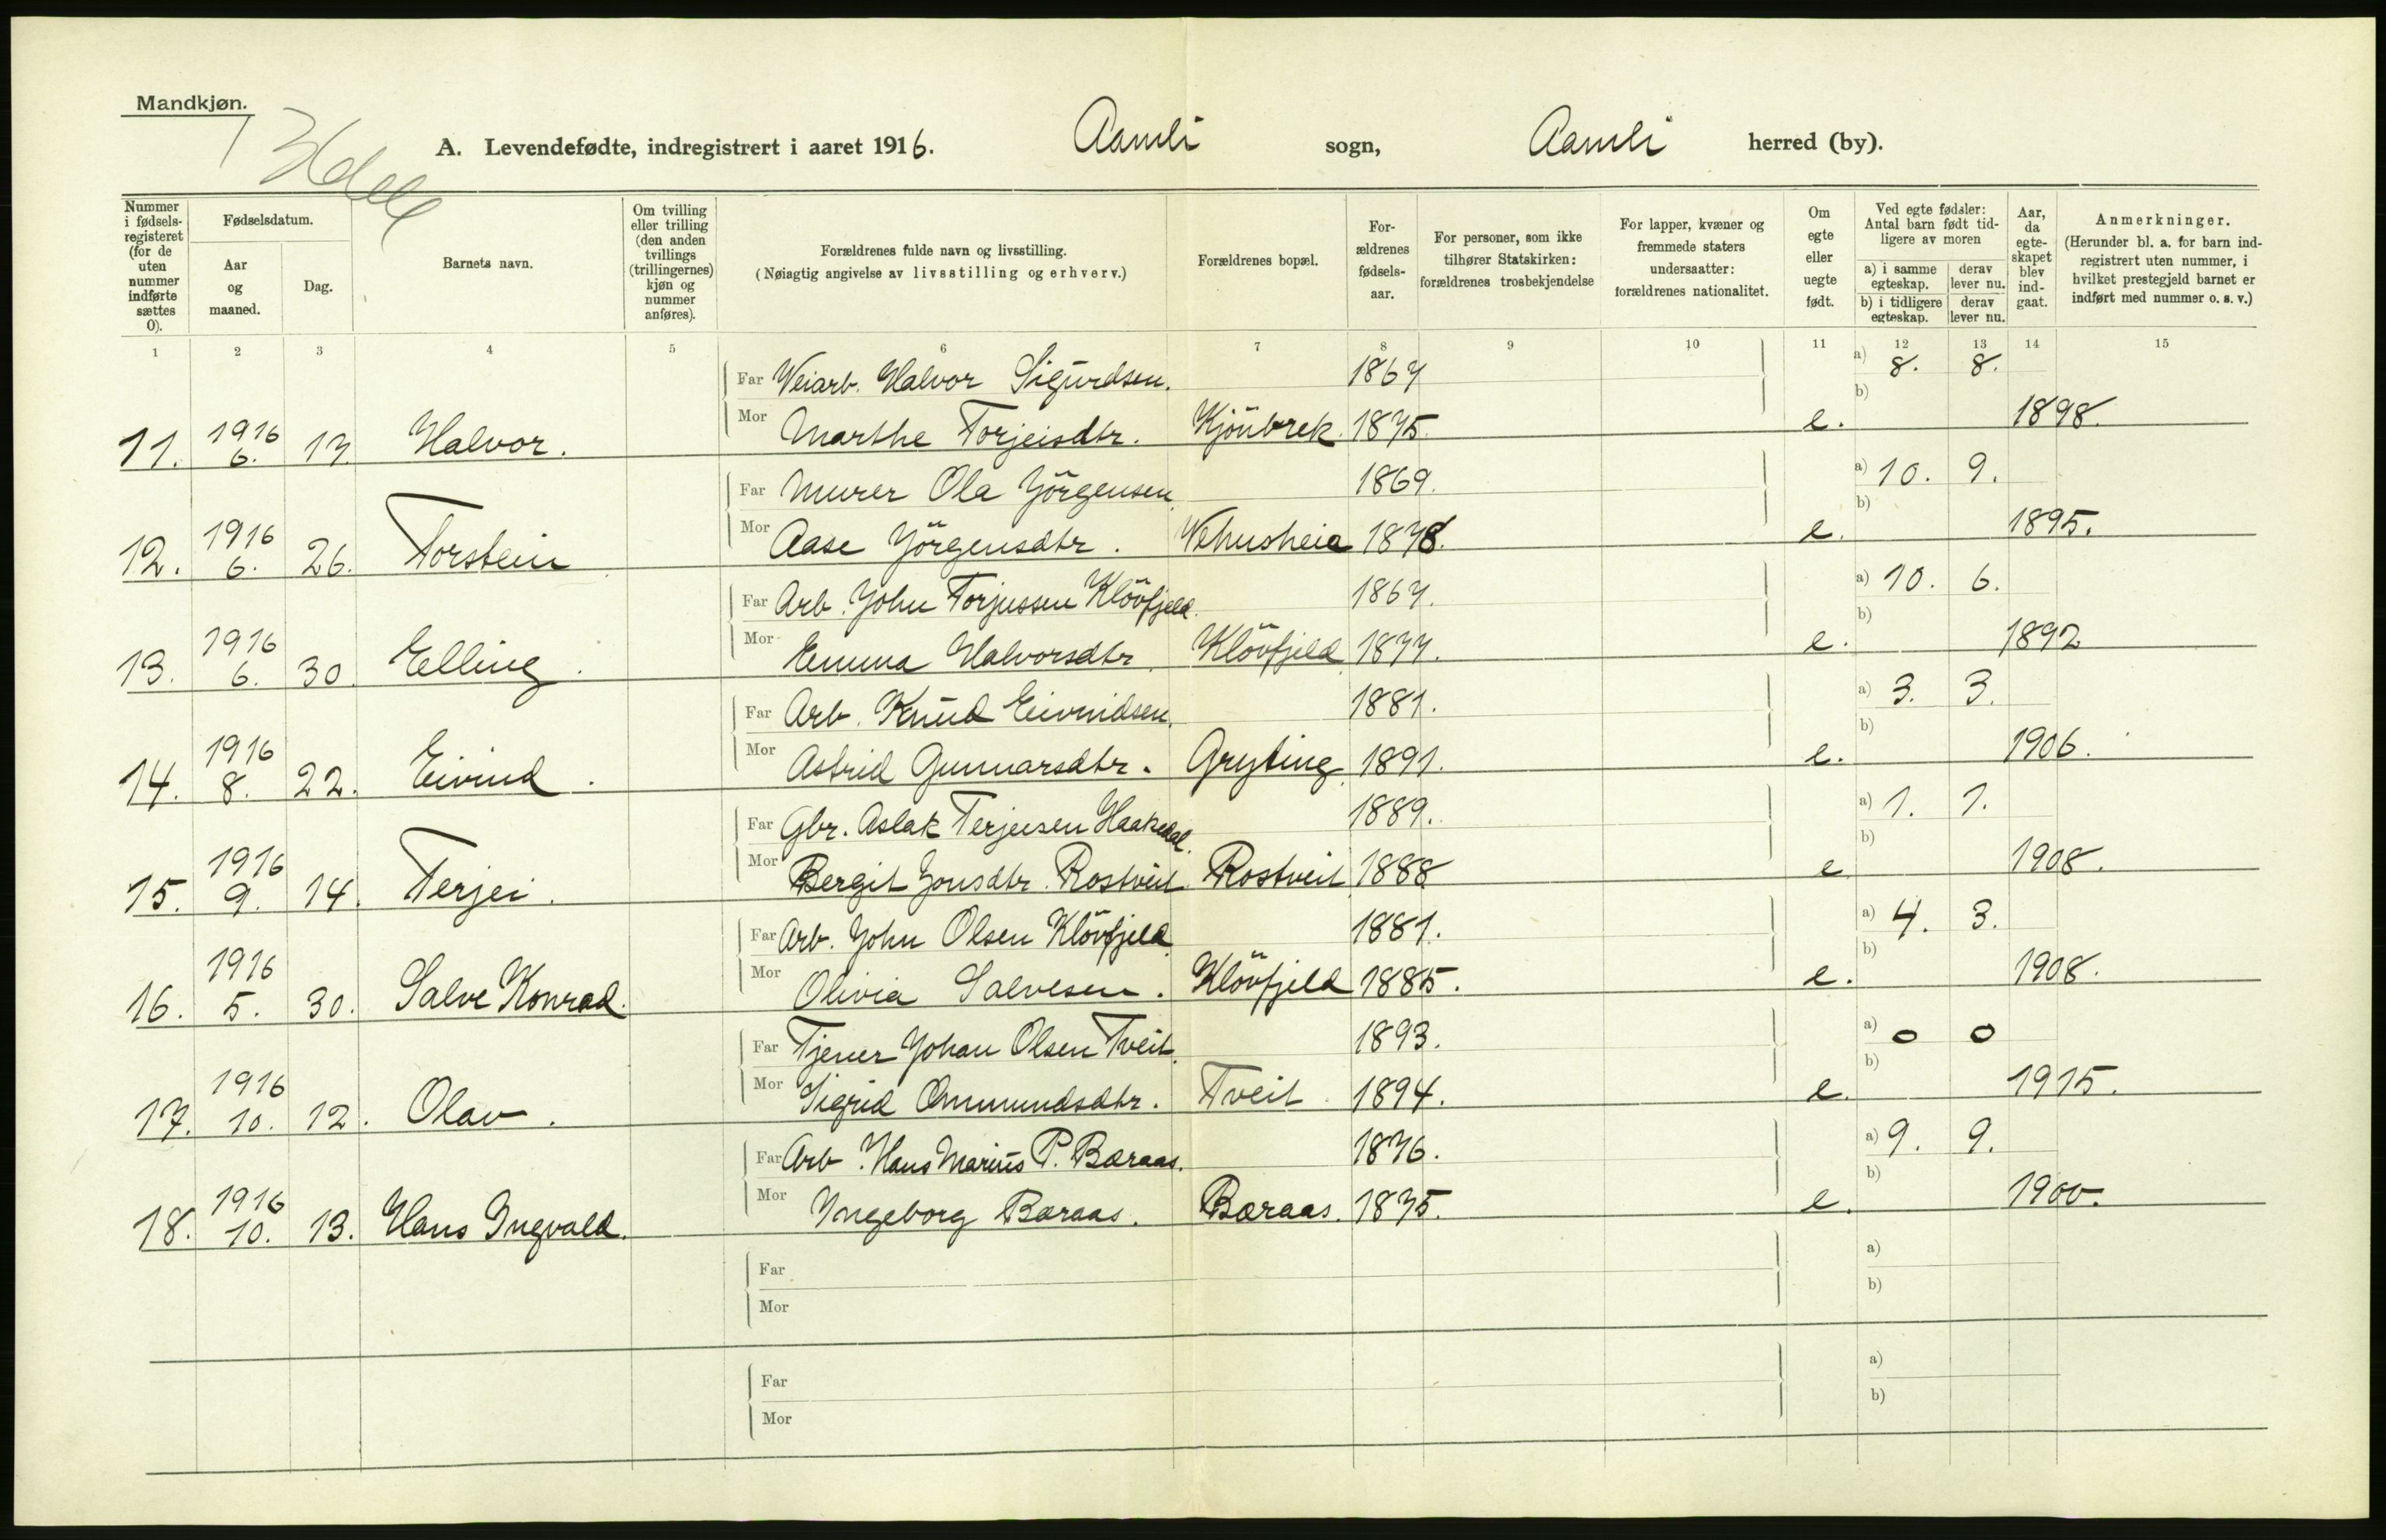 Mandkjøn.
A. Levendefødte, indregistrert i aaret 1916. Aamli sogn, Aamli herred (by).
Nummer i fødselsregisteret (for de uten nummer indførte sættes 0).
Fødselsdatum.
Aar og maaned.
Dag.
Barnets navn.
Om tvilling eller trilling (den anden tvillings (trillingernes) kjøn og nummer anføres).
Forældrenes fulde navn og livsstilling.
(Nøiagtig angivelse av livsstilling og erhverv.)
Forældrenes bopæl.
Forældrenes fødselsaar.
For personer, som ikke tilhører Statskirken: forældrenes trosbekjendelse
For lapper, kvæner og fremmede staters undersaatter: forældrenes nationalitet.
Om egte eller uegte født.
Ved egte fødsler: Antal barn født tidligere av moren
a) i samme egteskap. derav lever nu.
b) i tidligere egteskap. derav lever nu.
Aar, da egteskapet blev indgaat.
Anmerkninger.
(Herunder bl. a. for barn indregistrert uten nummer, i hvilket prestegjeld barnet er indført med nummer o. s. v.)
1 2 3 4 5 6 7 8 9 10 11 12 13 14 15
Far Veiarb. Halvor Sigurdsen. 1867 a) 8. 8.
b)
11. 1916 6. 17. Halvor. Mor Marthe Torjeisdtr. Kjönbrek. 1875. e. 1898.
Far Murer Ola Jörgensen. 1869. a) 10. 9.
b)
12. 1916 6. 26. Torstein Mor Aase Jörgensdtr. Vehusheia 1878. e. 1895.
Far Arb. John Torjussen Klövfjeld. 1867. a) 10. 6.
b)
13. 1916 6. 30. Elling. Mor Emma Halvorsdtr. Klövfjeld 1877. e. 1892
Far Arb. Knud Eivindsen. 1881. a) 3. 3.
b)
14. 1916 8. 22. Eivind. Mor Astrid Gunnarsdtr. Gryting 1891. e. 1906.
Far Gbr. Aslak Terjeisen Haakedal. 1889. a) 1. 1.
b)
15. 1916 9. 14. Terjei. Mor Bergit Jonsdtr. Rostveit. Rostveit 1888 e. 1908.
Far Arb. John Olsen Klövfjeld. 1881. a) 4. 3.
b)
16. 1916 5. 30. Salve Konrad. Mor Olivia Salvesen. Klövfjeld 1885. e. 1908.
Far Tjener Johan Olsen Tveit. 1893. a) 0 0
b)
17. 1916 10. 12. Olav. Mor Sigrid Ommundsdtr. Tveit. 1894. e. 1915.
Far Arb. Hans Marius P. Baraas. 1876. a) 9. 9.
b)
18. 1916 10. 13. Hans Ingvald. Mor Ingeborg Baraas. Baraas. 1875. e. 1900.
Far a)
Mor b)
Far a)
Mor b)